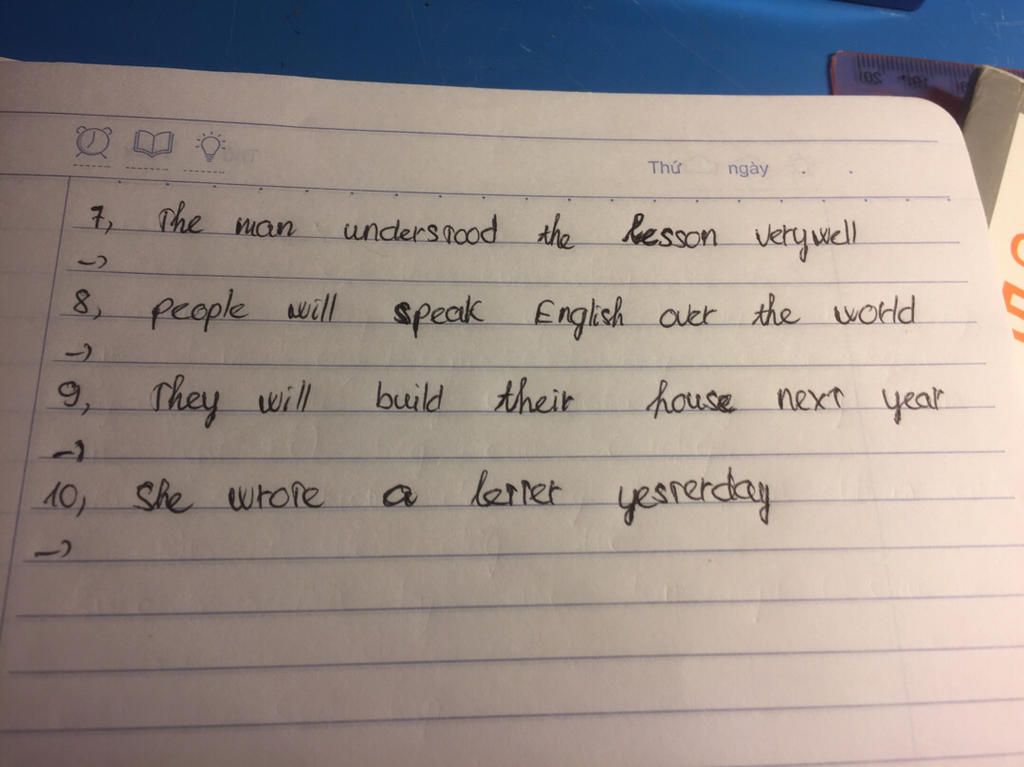 Thứ ngày
7, The man understood the lesson very well
->
8, people will speak English over the world
->
9, They will build their house next year
->
10, she wrote a letter yesterday
->